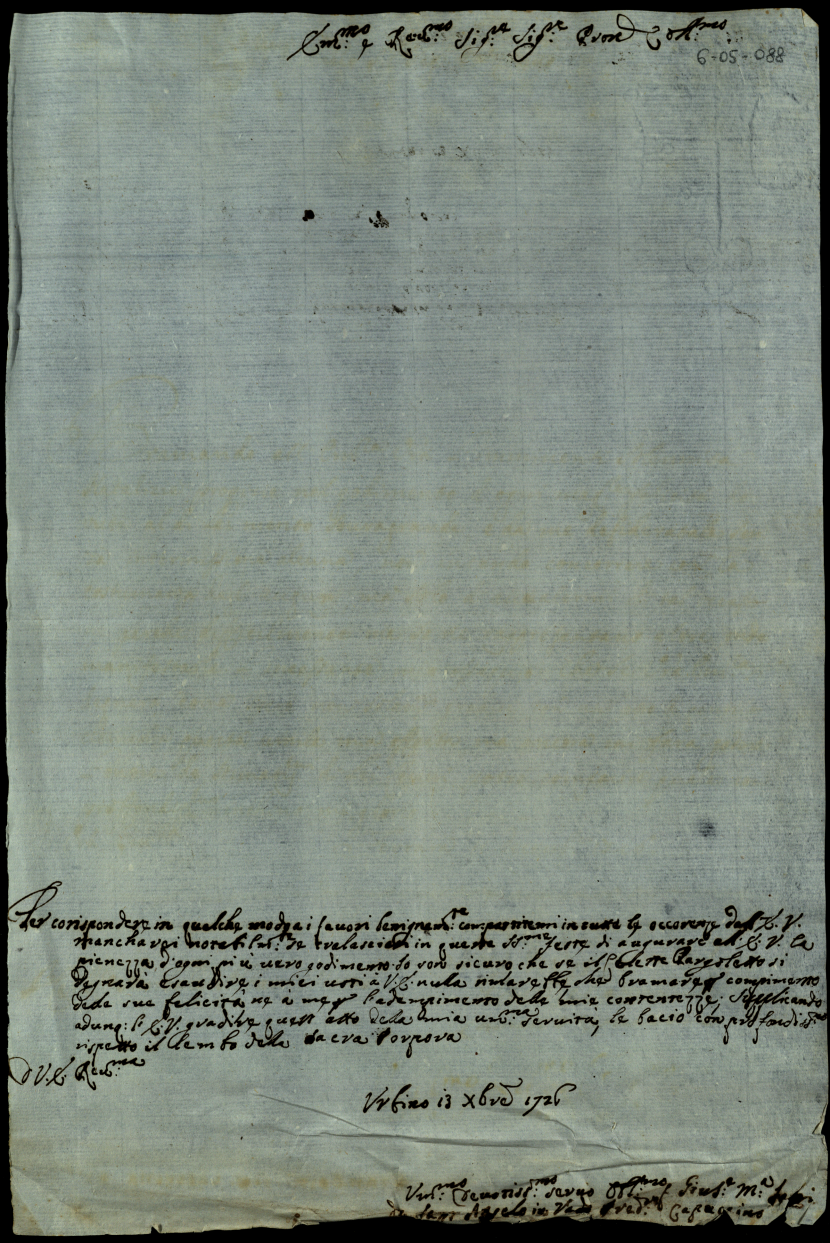 Em.mo e Rev.mo Sig.r Sig.r Pron Col.mo
6-05-088
Per corispondere in qualche modo a i favori benignam.te compartitemi in tutte le occorenze dall'E. V.
mancharei notabilm.te se tralasciassi in queste SS.me feste di augurare all'E. V. la
pienezza d'ogni più vero godimento. Io son sicuro che se il Celeste Pargoletto si
degnarà esaudire i miei voti à V. E. nula restarebbe che bramare per compimento
dele sue felicità, ne à me per l'adempimento delle mie contentezze; Suplicando
adunq: l'E. V. gradire quest atto della mia um.ma servitù, le bacio con profondis.mo
rispetto il lembo della sacra Porpora
D V. E. Rev.ma
Urbino 13 Xbre 1726
Um.mo Devotiss.mo Servo Obl.mo F. Gius.e M.a
da Sant Angelo in Vado Pred.re Capucino